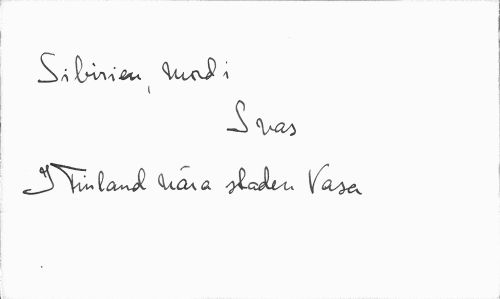 Sibirien, mord i
Svas
I Finland nära staden Vasa